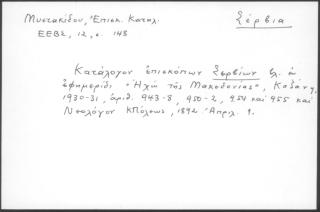 Μυστακίδου, Ἐπισκ. Κατάλ. Σέρβια
ΕΕΒΣ, 12, σ. 148
Κατάλογον ἐπισκόπων Σερβίων βλ. ἐν
ἐφημερίδι "Ἠχὼ τῆς Μακεδονίας", Κοζάνη,
1930-31, ἀριθ. 943-8, 950-2, 954 καὶ 955 καὶ
Νεολόγον ΚΠόλεως, 1892 Ἀπριλ. 9.